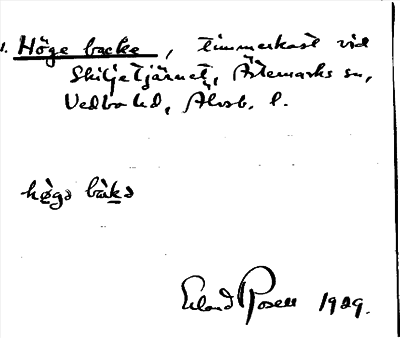 1. Höge backe, timmerkast vid
Skiljetjärnet, Ärtemarks sn,
Vedbo hd, Älvsb. l.
hø̀gə bàkə
Erland Rosell 1929.